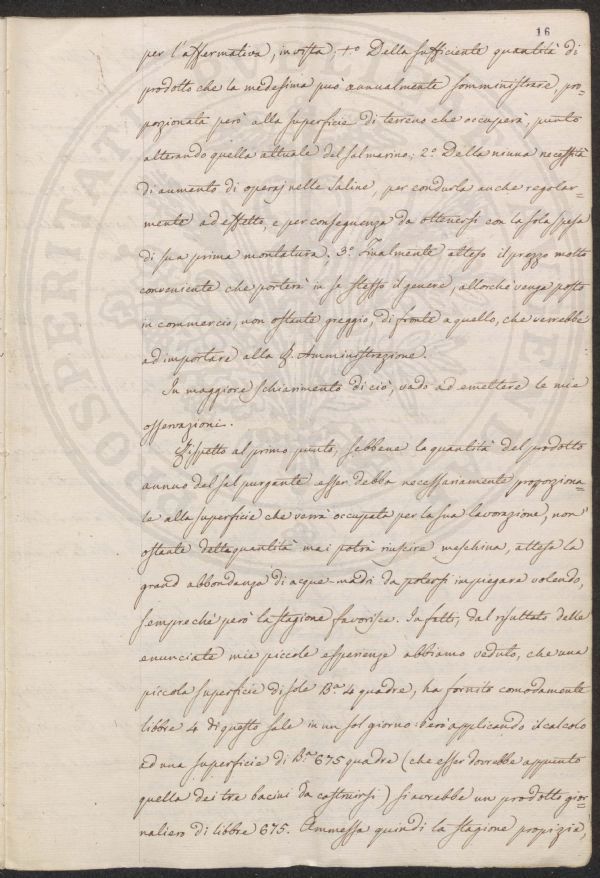 16
per l'affermativa, in vista. 1.º Della sufficiente quantità di
prodotto che la medesima può annualmente somministrare, pro-
porzionata però alla superficie di terreno che occuperà, punto
alterando quella attuale del sal marino; 2.º Della niuna necessità
di aumento di operaj nelle Saline, per condurla anche regolar-
mente ad effetto, e per conseguenza da ottenersi con la sola spesa
di sua prima montatura. 3.º Finalmente atteso il prezzo molto
conveniente che porterà in se stesso il genere, allorchè venga posto
in commercio, non ostante greggio, di fronte a quello, che verrebbe
ad importare alla R. Amministrazione.
In maggiore schiarimento di ciò, vado ad emettere le mie
osservazioni.
Rispetto al primo punto, sebbene la quantità del prodotto
annuo del sal purgante esser debba necessariamente proporziona-
le alla superficie che verrà occupata per la sua lavorazione, non
ostante detta quantità mai potrà riuscire meschina, attesa la
grand' abbondanza di acque-madri da potersi impiegare volendo,
sempre chè però la stagione favorisca. Infatti, dal risultato delle
enunciate mie piccole esperienze abbiamo veduto, che una
piccola superficie di sole B.ª 4 quadre, ha fornito comodamente
libbre 4 di questo sale in un sol giorno: Però applicando il calcolo
ad una superficie di B.ª 675 quadre (che esser dovrebbe appunto
quella dei tre bacini da costruirsi) si avrebbe un prodotto gior-
naliero di libbre 675. Ammessa quindi la stagione propizia,
PROSPERITATI